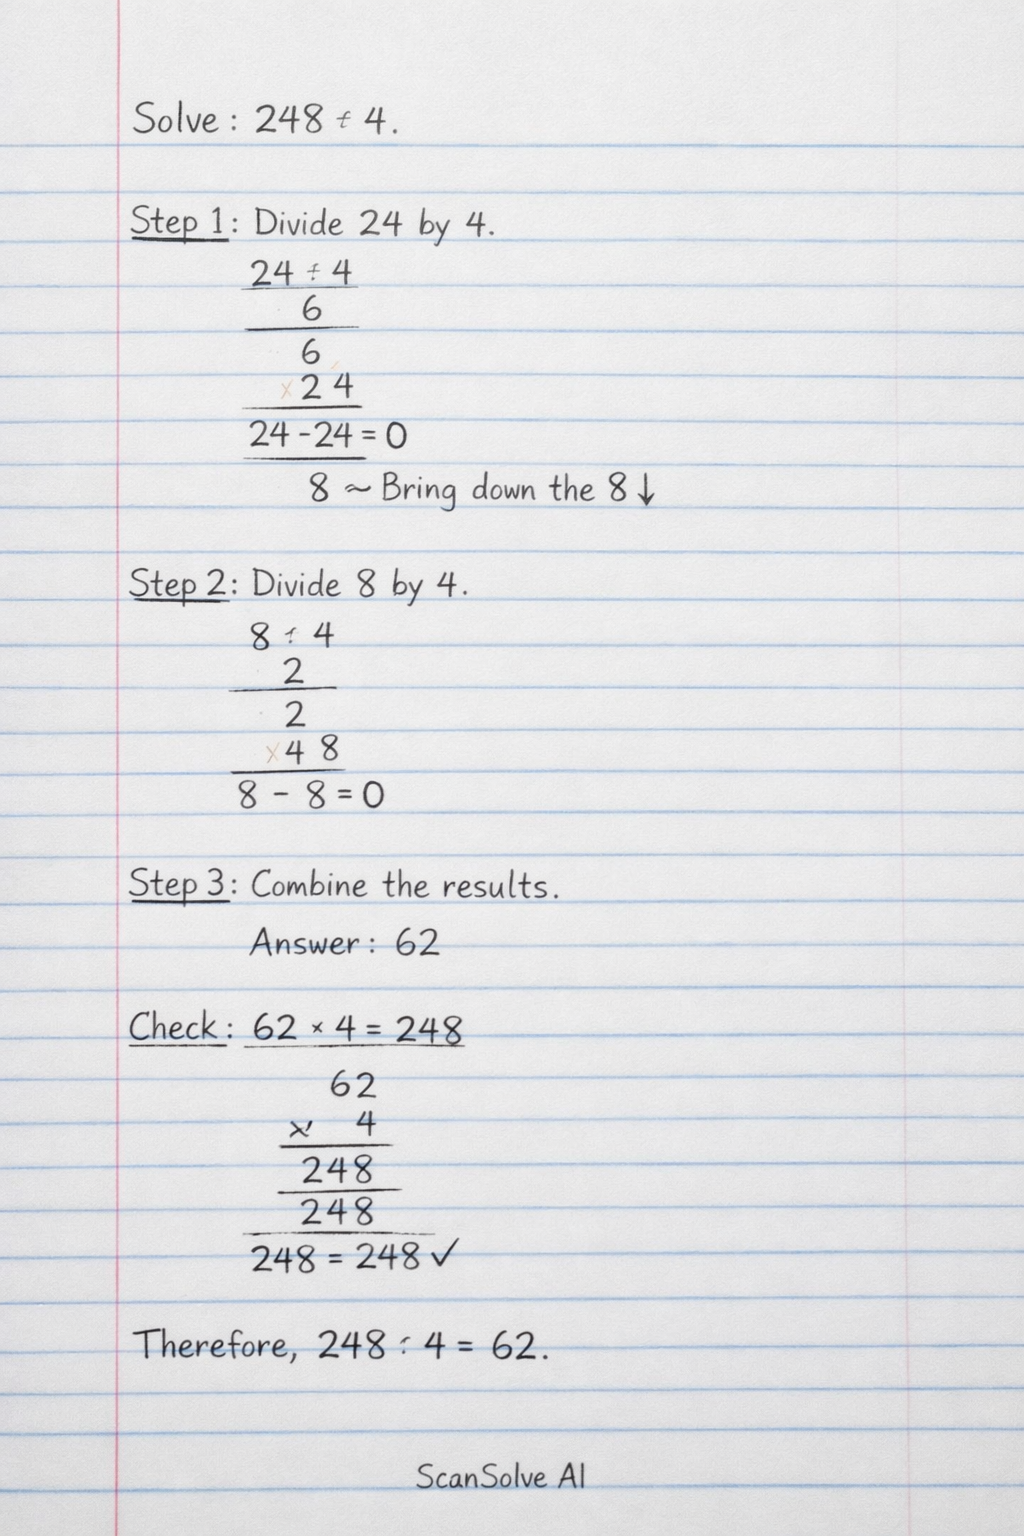 Solve: 248 ÷ 4.
Step 1: Divide 24 by 4.
24 ÷ 4
6
6
× 2 4
24 - 24 = 0
8 ~ Bring down the 8 ↓
Step 2: Divide 8 by 4.
8 ÷ 4
2
2
× 4 8
8 - 8 = 0
Step 3: Combine the results.
Answer: 62
Check: 62 × 4 = 248
62
× 4
248
248
248 = 248 ✓
Therefore, 248 ÷ 4 = 62.
ScanSolve AI